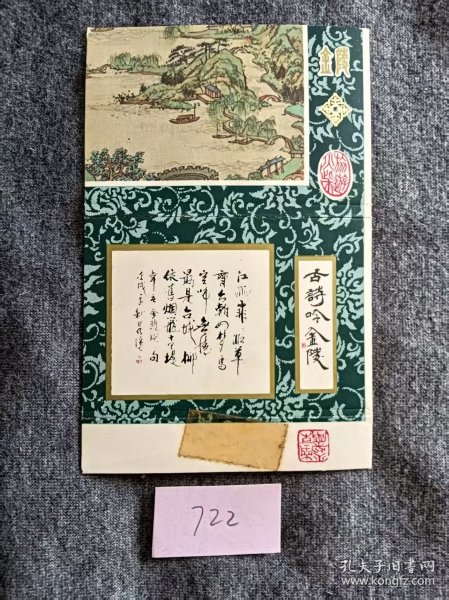 金陵
古詩吟金陵
江雨霏霏江草
齊六朝如夢鳥
空啼無情
最是台城柳
依舊烟籠十里堤
722
孔夫子旧书网
www.kongfz.com